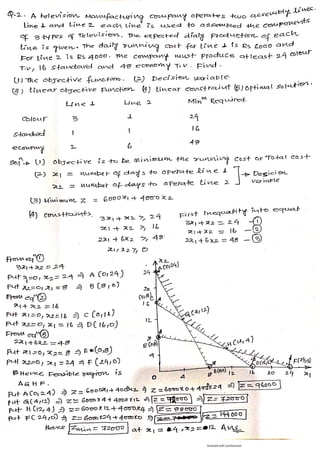 Q.2. A television Manufacturing company operates two assembly lines.
line 1 and Line 2 each line is used to assembled the components
of 3 types of Television. The expected dialy Production of each
line is given. The daily running cost for Line 1 is Rs 6000 and
For line 2 is Rs 4000. The company must Produce atleast 24 colour
T.V, 16 standard and 48 economy T.V. Find.
(1) The objective function. (2) Decision variable
(3) linear objective function (4) linear constraint (5) optimal solution.
Line 1 Line 2 Minm Required
Colour 3 1 24
Standard 1 1 16
economy 2 6 48
Soln → (1) Objective is to be Minimum the running cost or Total cost
(2) x1 = number of days to operate line 1 → Decision
x2 = number of days to operate line 2 Variable
(3) Minimum Z = 6000x1 + 4000x2
(4) constraints.
3x1+x2 ≥ 24
x1 + x2 ≥ 16
2x1 + 6x2 ≥ 48
x1, x2 ≥ 0
First Inequality into equat
3x1+x2 = 24 -①
x1 + x2 = 16 -②
2x1 +6x2 = 48 -③
From eqn ①
3x1+x2 = 24
Put x1=0, x2=24 ⇒ A (0,24)
Put x2=0, x1=8 ⇒ B (8,0)
From eqn ②
x1+x2 = 16
Put x1=0, x2=16 ⇒ C (0,16)
Put x2=0, x1=16 ⇒ D (16,0)
From eqn ③
2x1+6x2 = 48
Put x1=0, x2=8 ⇒ E (0,8)
Put x2=0, x1=24 ⇒ F (24,0)
x2
24 A(0,24)
16
12
G(4,12)
8
H(12,4)
4
0 4 8 12 16 20 24 x1
Hence Feasible region is
AGHF.
Put A(0,24) ⇒ Z = 6000x1 + 4000x2 ⇒ Z = 6000x0 + 4000x24 ⇒ Z = 96000
Put G(4,12) ⇒ Z = 6000x4 + 4000x12 ⇒ Z = 72000
Put H(12,4) ⇒ Z = 6000x12 + 4000x4 ⇒ Z = 88000
Put F(24,0) ⇒ Z = 6000x24 + 4000x0 ⇒ Z = 144000
Hence Zmin = 72000 at x1 = 4, x2 = 12 Ans